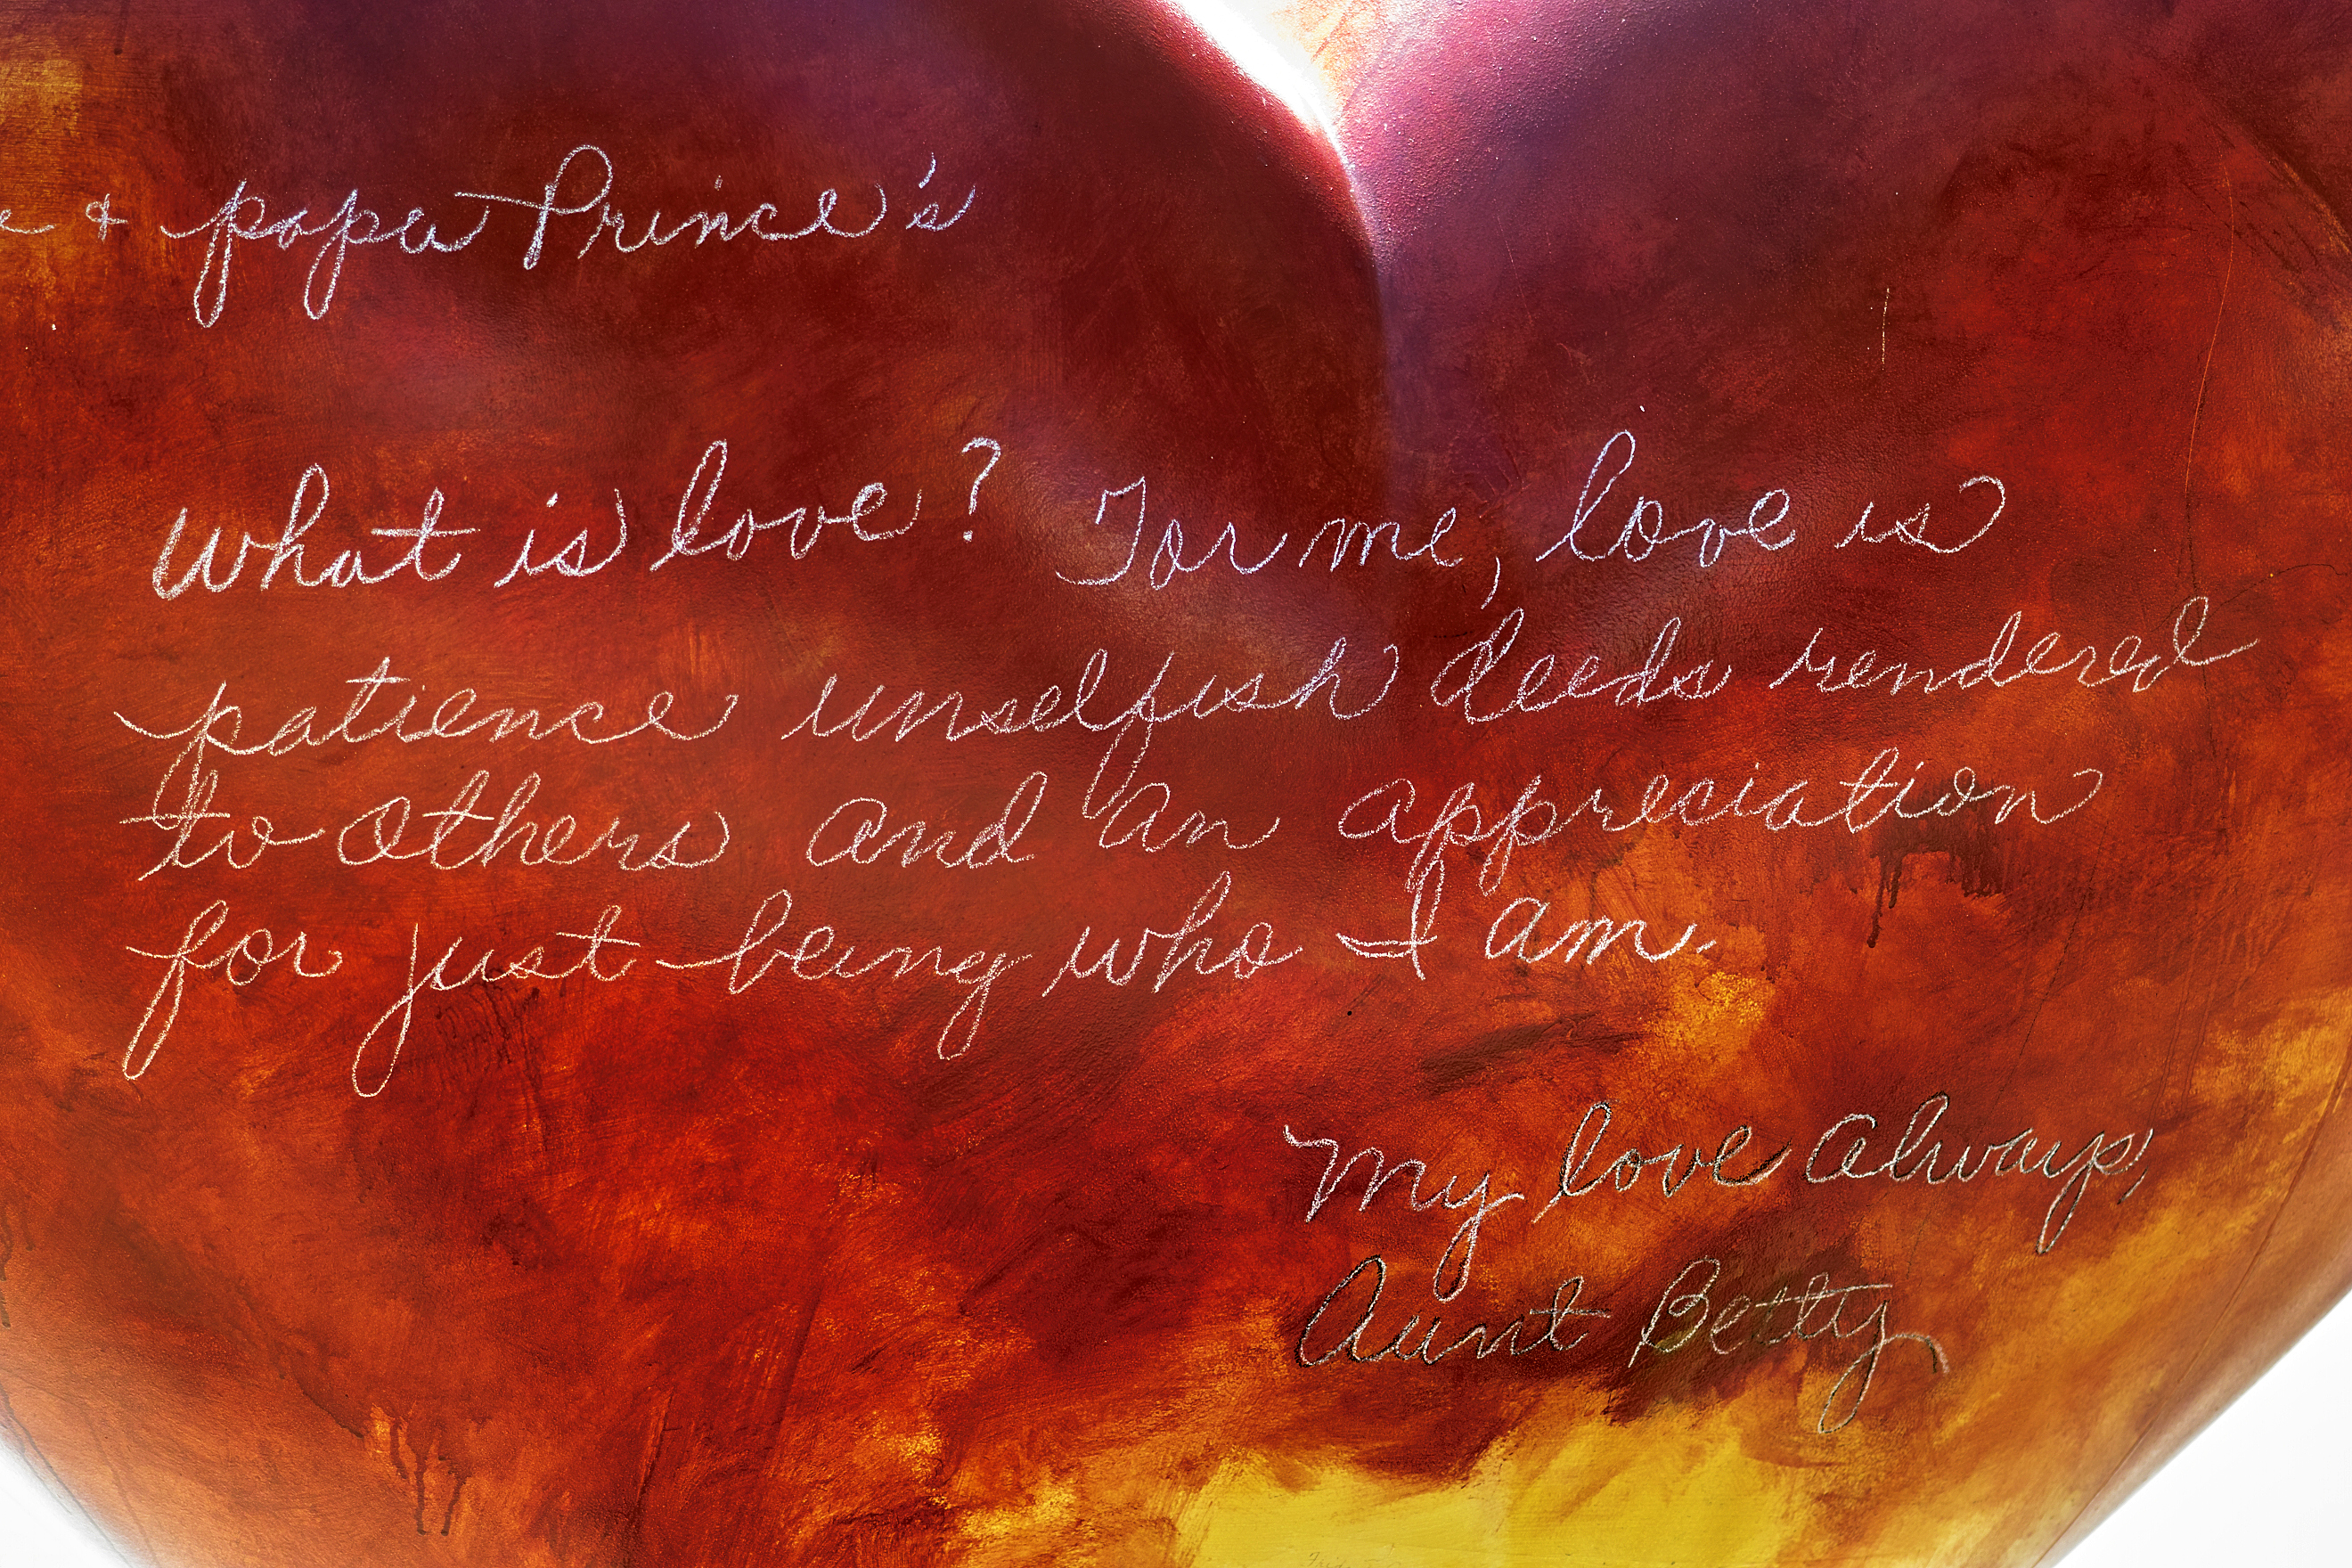 & papa Prince's
What is love? For me, love is
patience unselfish deeds rendered
to others and an appreciation
for just being who I am.
My love always,
Aunt Betty